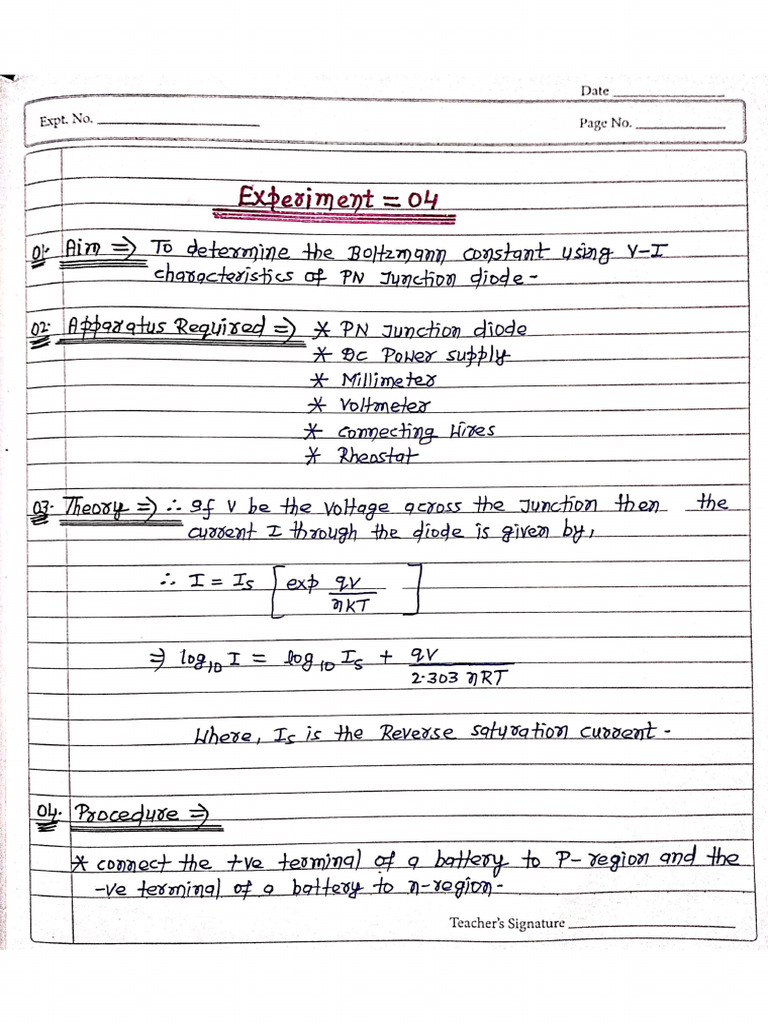 Date
Expt. No.
Page No.
Experiment = 04
01. Aim ⇒ To determine the Boltzmann constant using V-I
characteristics of PN Junction diode-
02. Apparatus Required ⇒ * PN Junction diode
* DC Power supply
* Millimeter
* Voltmeter
* connecting wires
* Rheostat
03. Theory ⇒ ∴ If V be the voltage across the Junction then the
current I through the diode is given by,
∴ I = Is [exp qV/ηKT]
⇒ log10 I = log10 Is + qV/2.303 ηRT
Where, Is is the Reverse saturation current-
04. Procedure ⇒
* connect the +ve terminal of a battery to P-region and the
-ve terminal of a battery to n-region-
Teacher's Signature